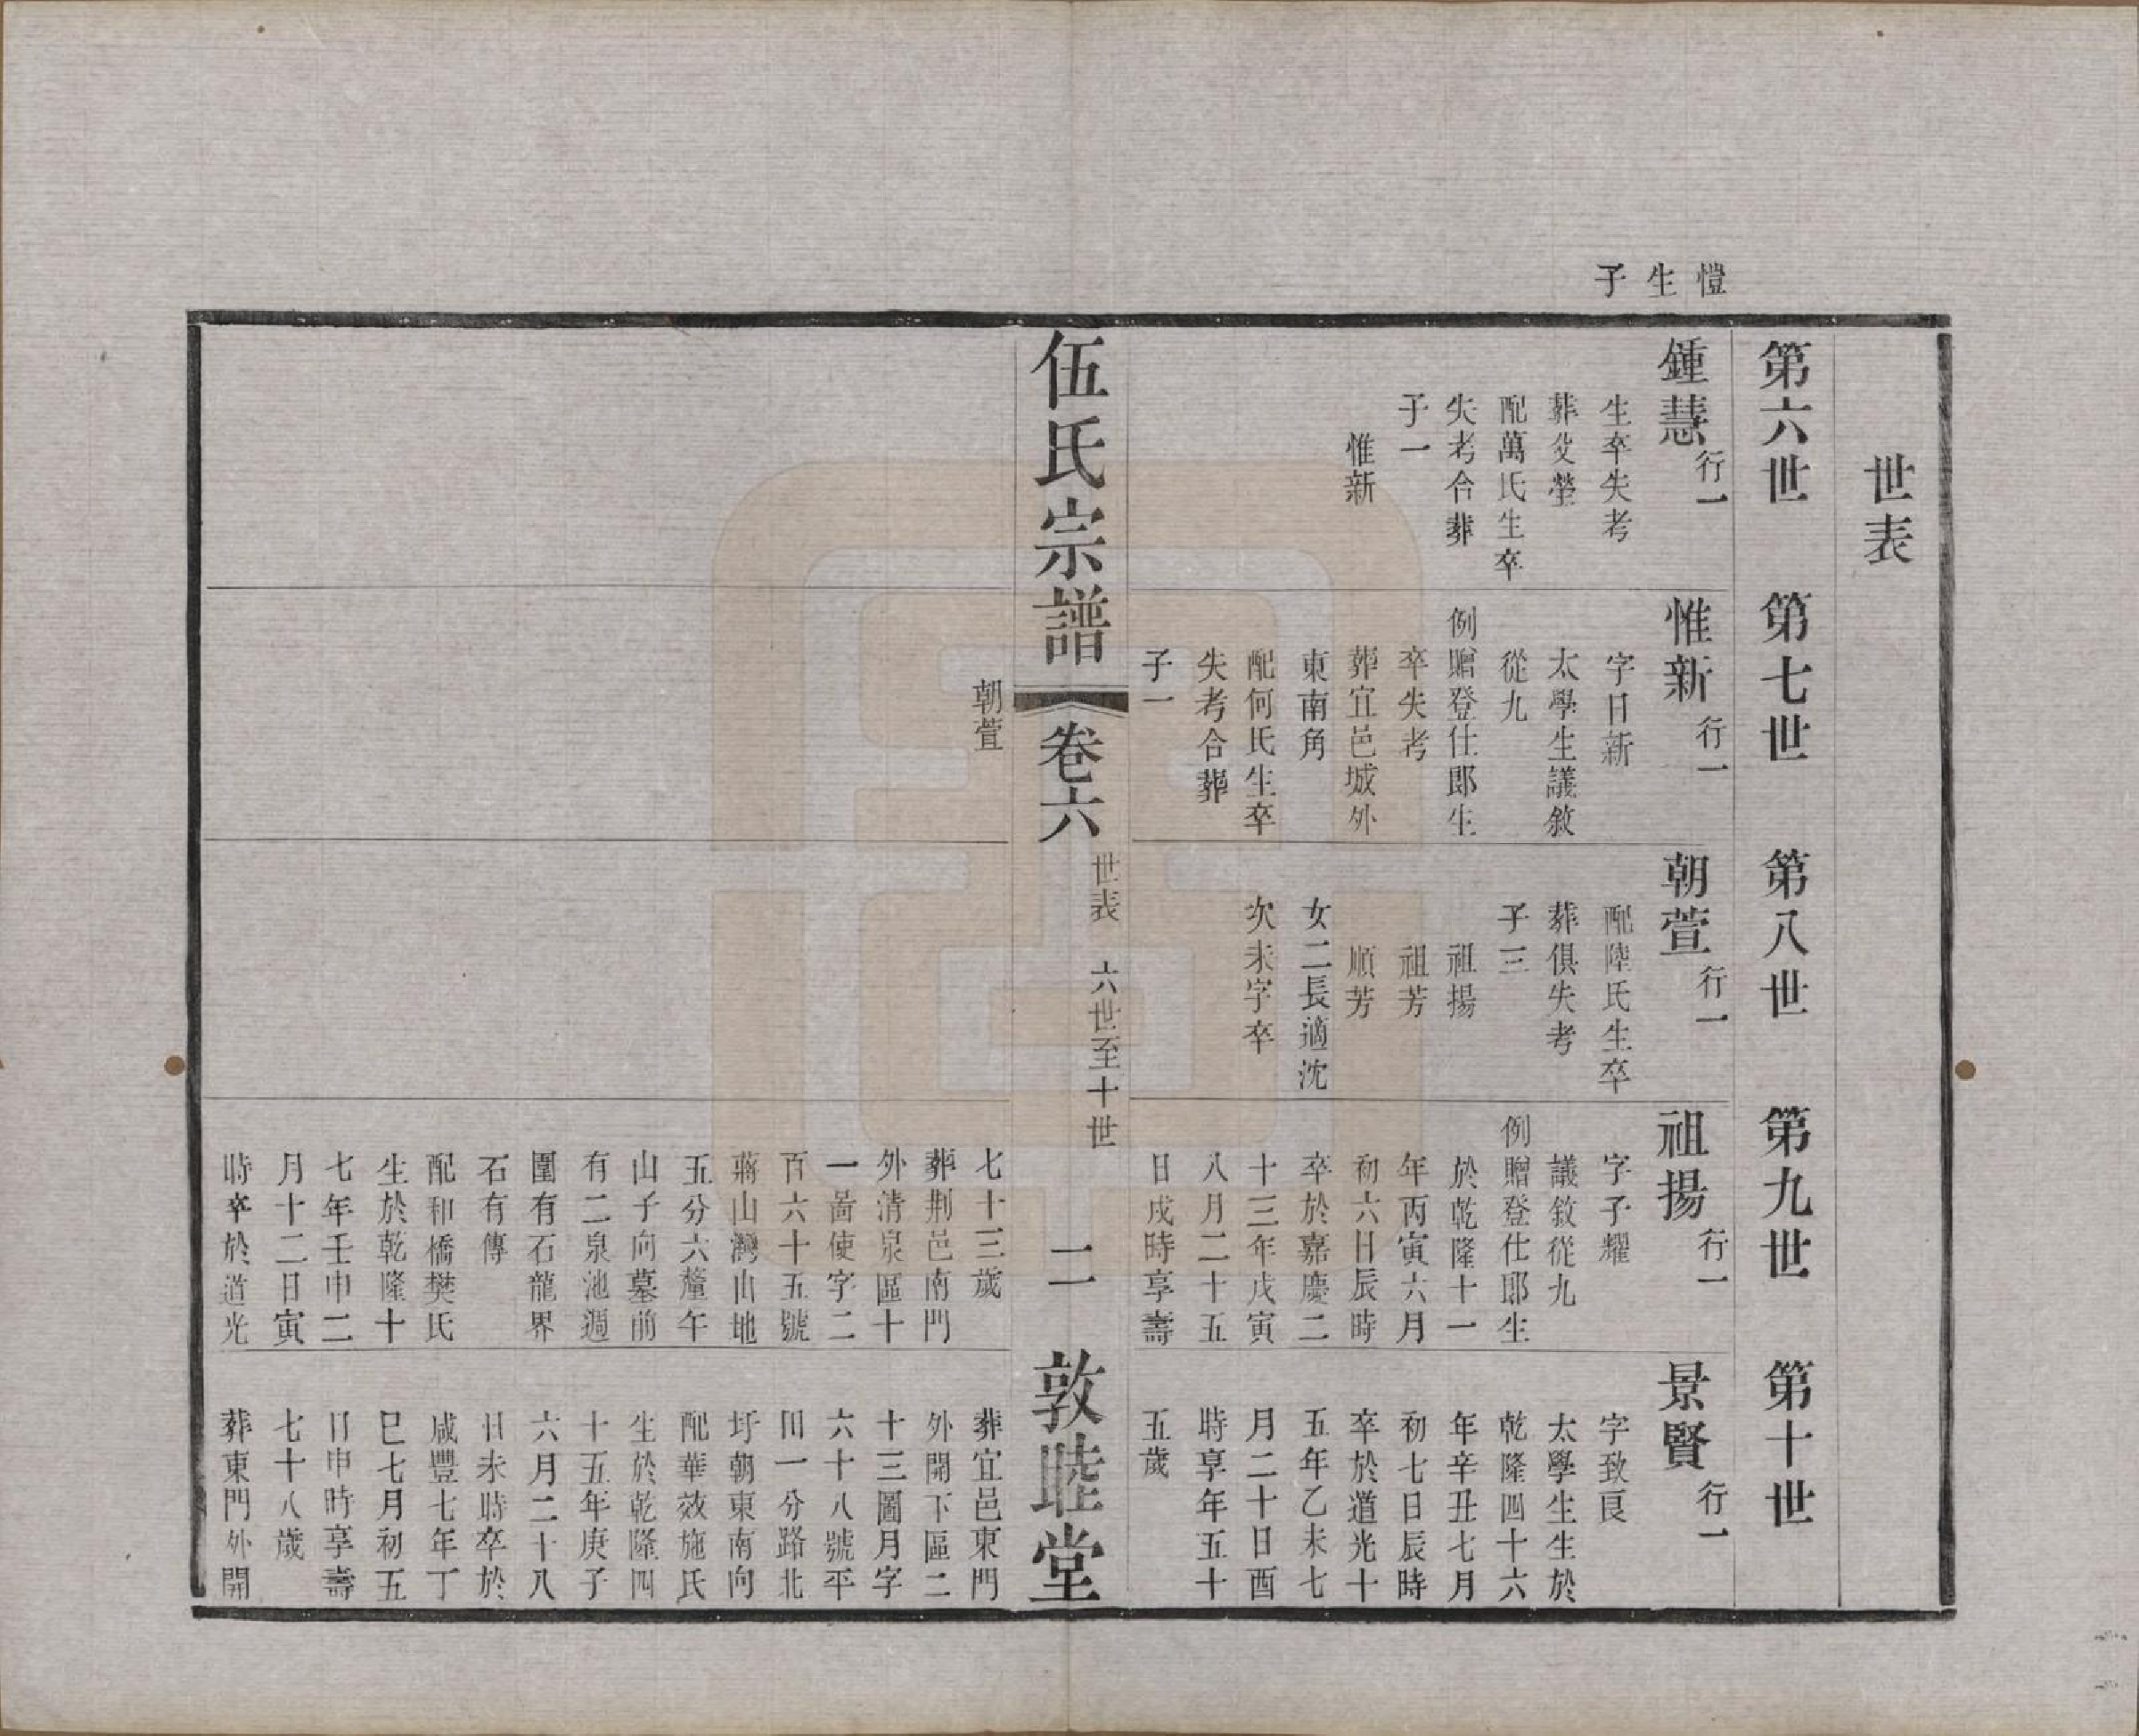 愷生子
世表
第六世
第七世
第八世
第九世
第十世
鍾慧行一
生卒失考
葬父塋
配萬氏生卒
失考合葬
子一
惟新
惟新行一
字日新
太學生議敘
從九
例贈登仕郎生
卒失考
葬宜邑城外
東南角
配何氏生卒
失考合葬
子一
朝萱
朝萱行一
配陸氏生卒
葬俱失考
子三
祖揚
祖芳
順芳
女二長適沈
次未字卒
祖揚行一
字子耀
議敘從九
例贈登仕郎生
於乾隆十一
年丙寅六月
初六日辰時
卒於嘉慶二
十三年戊寅
八月二十五
日戌時享壽
七十三歲
葬荆邑南門
外清泉區十
一啚使字二
百六十五號
蔣山灣山地
五分六釐午
山子向墓前
有二泉池週
圍有石龍界
石有傳
配和橋樊氏
生於乾隆十
七年壬申二
月十二日寅
時卒於道光
景賢行一
字致良
太學生生於
乾隆四十六
年辛丑七月
初七日辰時
卒於道光十
五年乙未七
月二十日酉
時享年五十
五歲
葬宜邑東門
外開下區二
十三圖月字
六十八號平
田一分路北
圩朝東南向
配華效施氏
生於乾隆四
十五年庚子
六月二十八
日未時卒於
咸豐七年丁
巳七月初五
日申時享壽
七十八歲
葬東門外開
伍氏宗譜
卷六
世表 六世至十世
二
敦睦堂